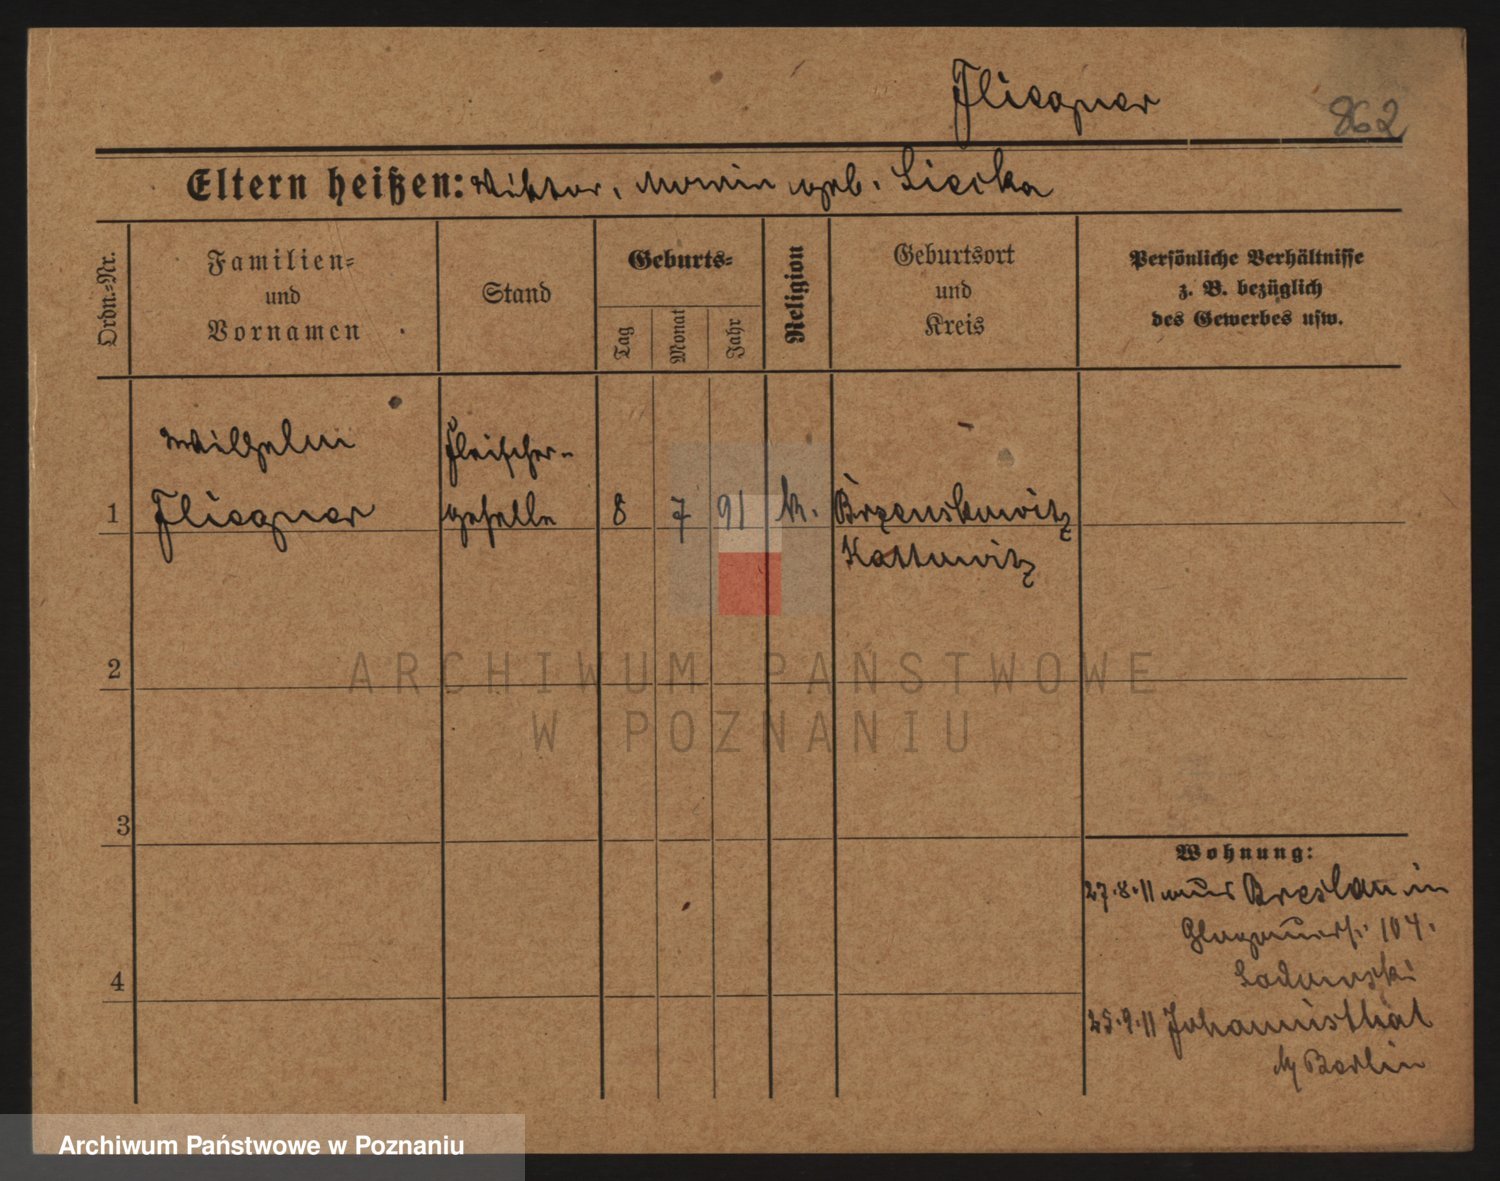 Fliegner
862
Eltern heißen: Viktor, Marie geb. Liecka
Ordn.-Nr.
Familien-
und
Vornamen
Stand
Geburts-
Tag
Monat
Jahr
Religion
Geburtsort
und
Kreis
Persönliche Verhältnisse
z. B. bezüglich
des Gewerbes usw.
Wilhelm
Fleischer-
1 Fliegner geselle 8 7 91 k. Brzenskowitz
Kattowitz
2
3
4
ARCHIWUM PAŃSTWOWE
W POZNANIU
Wohnung:
27.8.11 aus Breslau in
Glogauerstr. 104.
Sadowski
25.9.11 Johannisthal
b/ Berlin
Archiwum Państwowe w Poznaniu